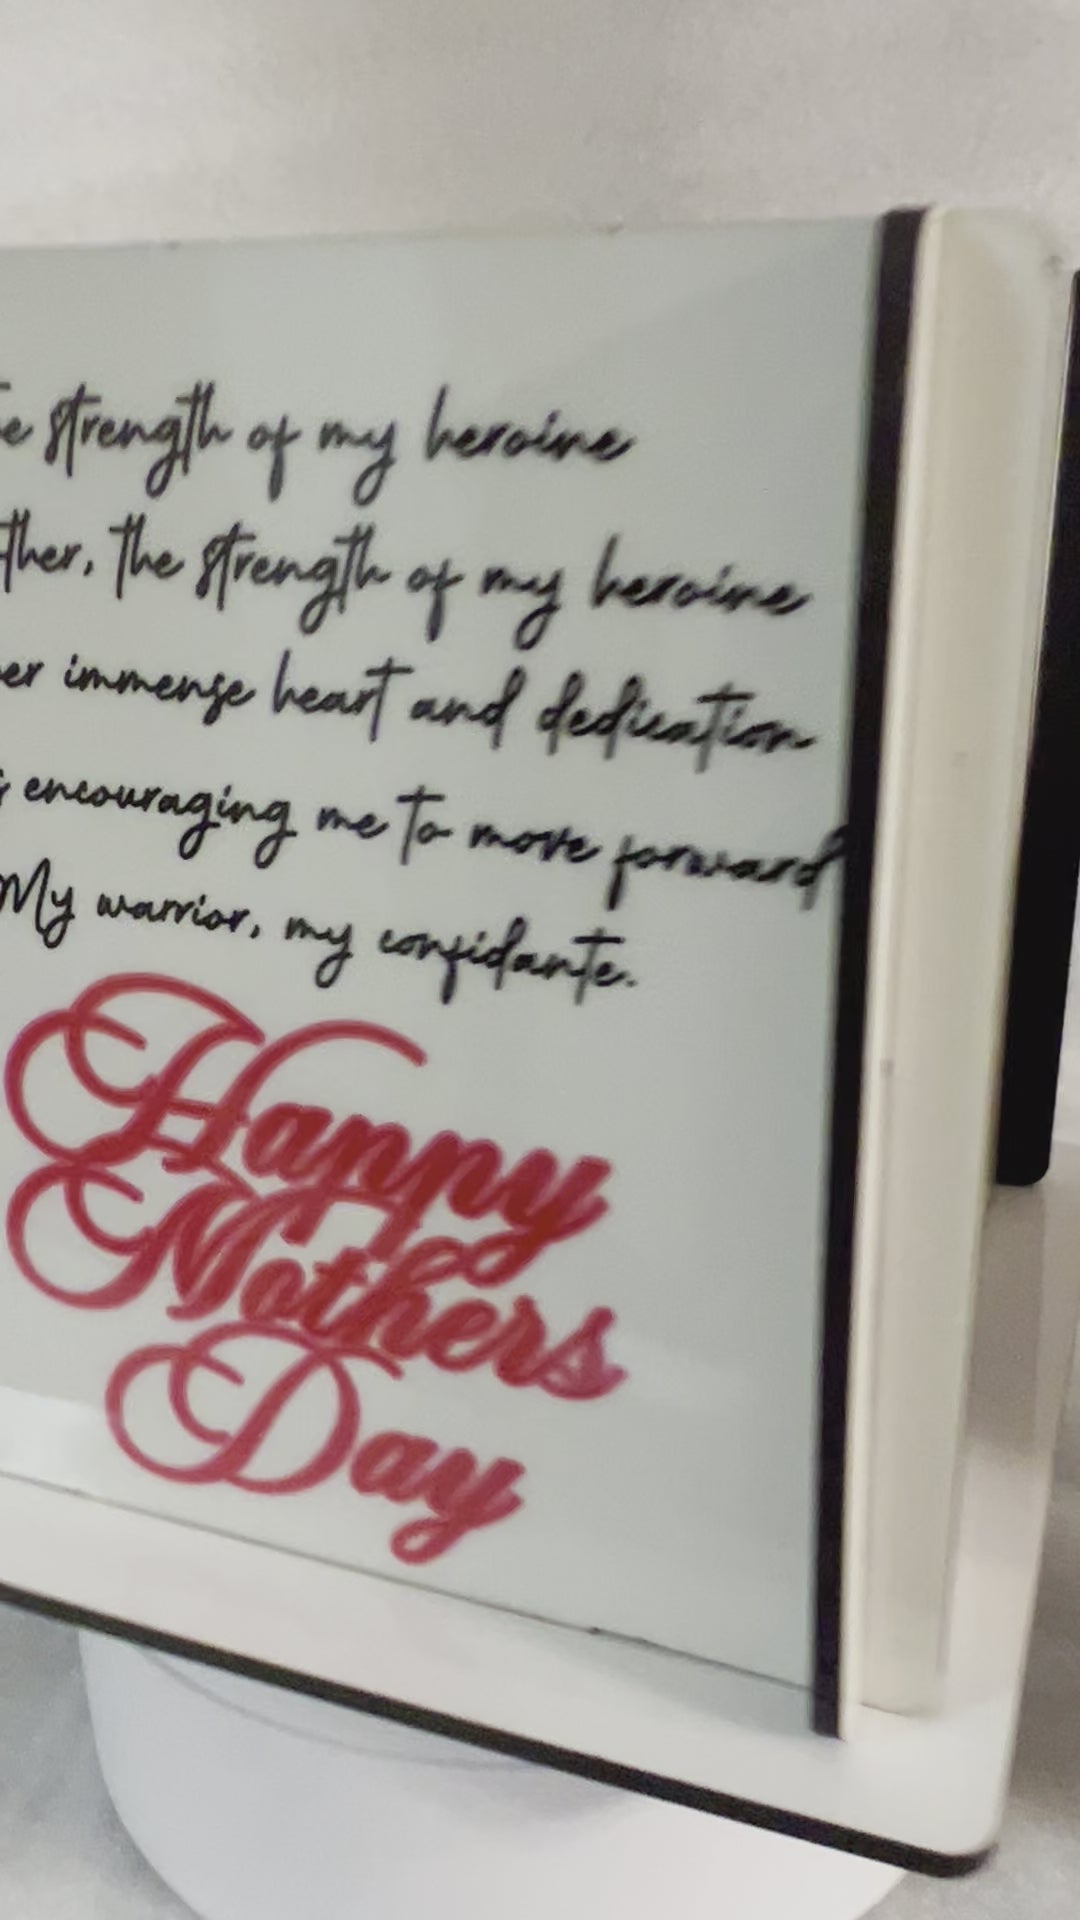 e strength of my heroine
ther, the strength of my heroine
er immense heart and dedication
encouraging me to move forward
My warrior, my confidante.
Happy
Mothers
Day